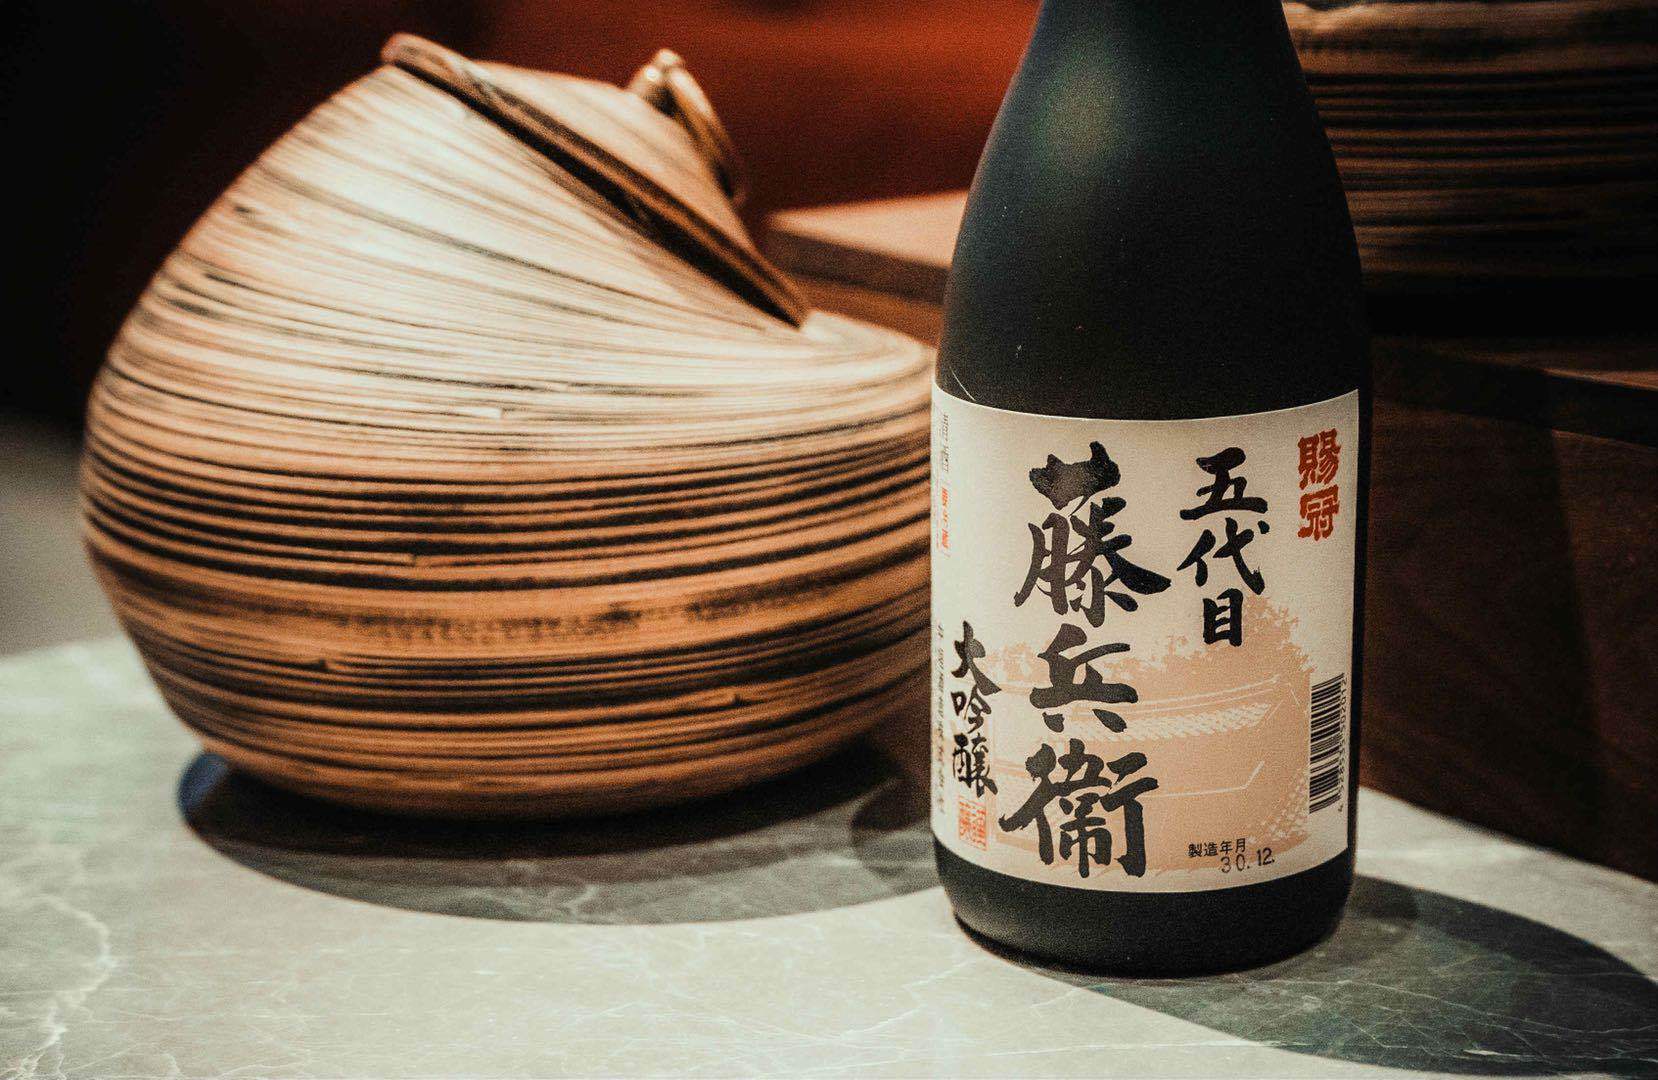 賜冠
五代目
藤兵衛
大吟醸
製造年月
30.12.